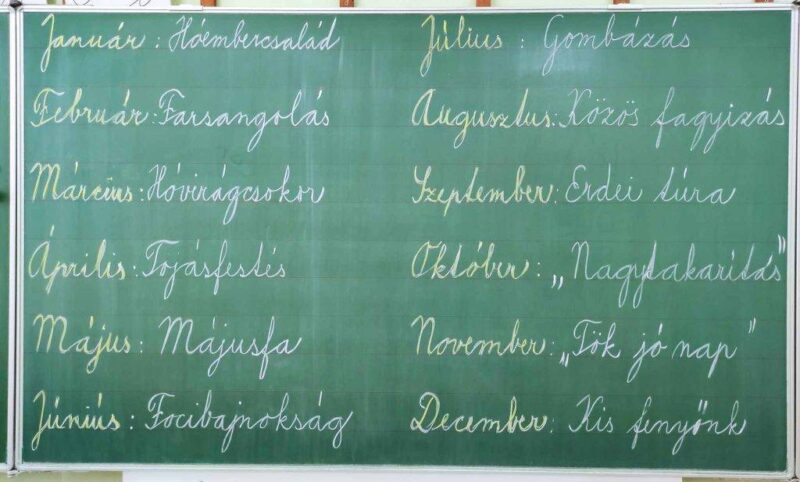 Január: Hóembercsalád
Február: Farsangolás
Március: Hóvirágcsokor
Április: Tojásfestés
Május: Májusfa
Június: Focibajnokság
Július: Gombázás
Augusztus: Közös fagyizás
Szeptember: Erdei túra
Október: „Nagytakarítás”
November: „Tök jó nap”
December: Kis fenyőnk